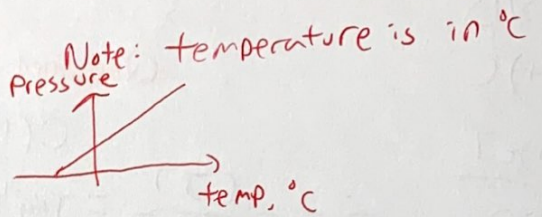 Note: temperature is in °C
Pressure
temp, °C